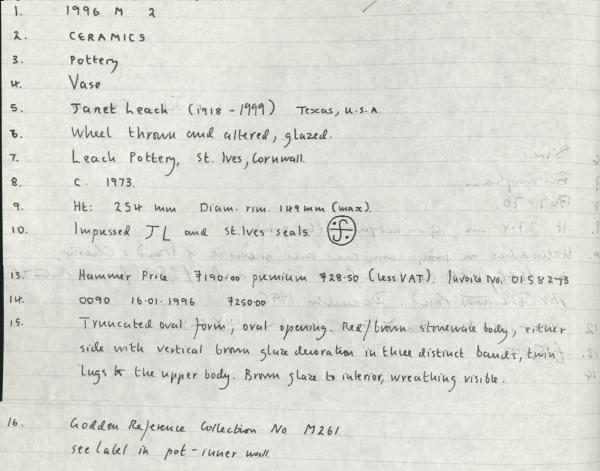 1. 1996 M 2
2. CERAMICS
3. Pottery
4. Vase
5. Janet Leach (1918 - 1999) Texas, U.S.A.
6. Wheel thrown and altered, glazed.
7. Leach Pottery, St. Ives, Cornwall.
8. C. 1973.
9. Ht: 254 mm Diam. rim. 149mm (max).
10. Impressed JL and St.Ives seals.
13. Hammer Price 7190.00 premium 728.50 (less VAT). Invoice No. 01582-13
14. 0090 16.01.1996 7250.00
15. Truncated oval form, oval opening. Red/brown stoneware body, either
side with vertical brown glaze decoration in three distinct bands, twin
lugs to the upper body. Brown glaze to interior, wreathing visible.
16. Godden Reference Collection No M261
see label in pot - inner wall.